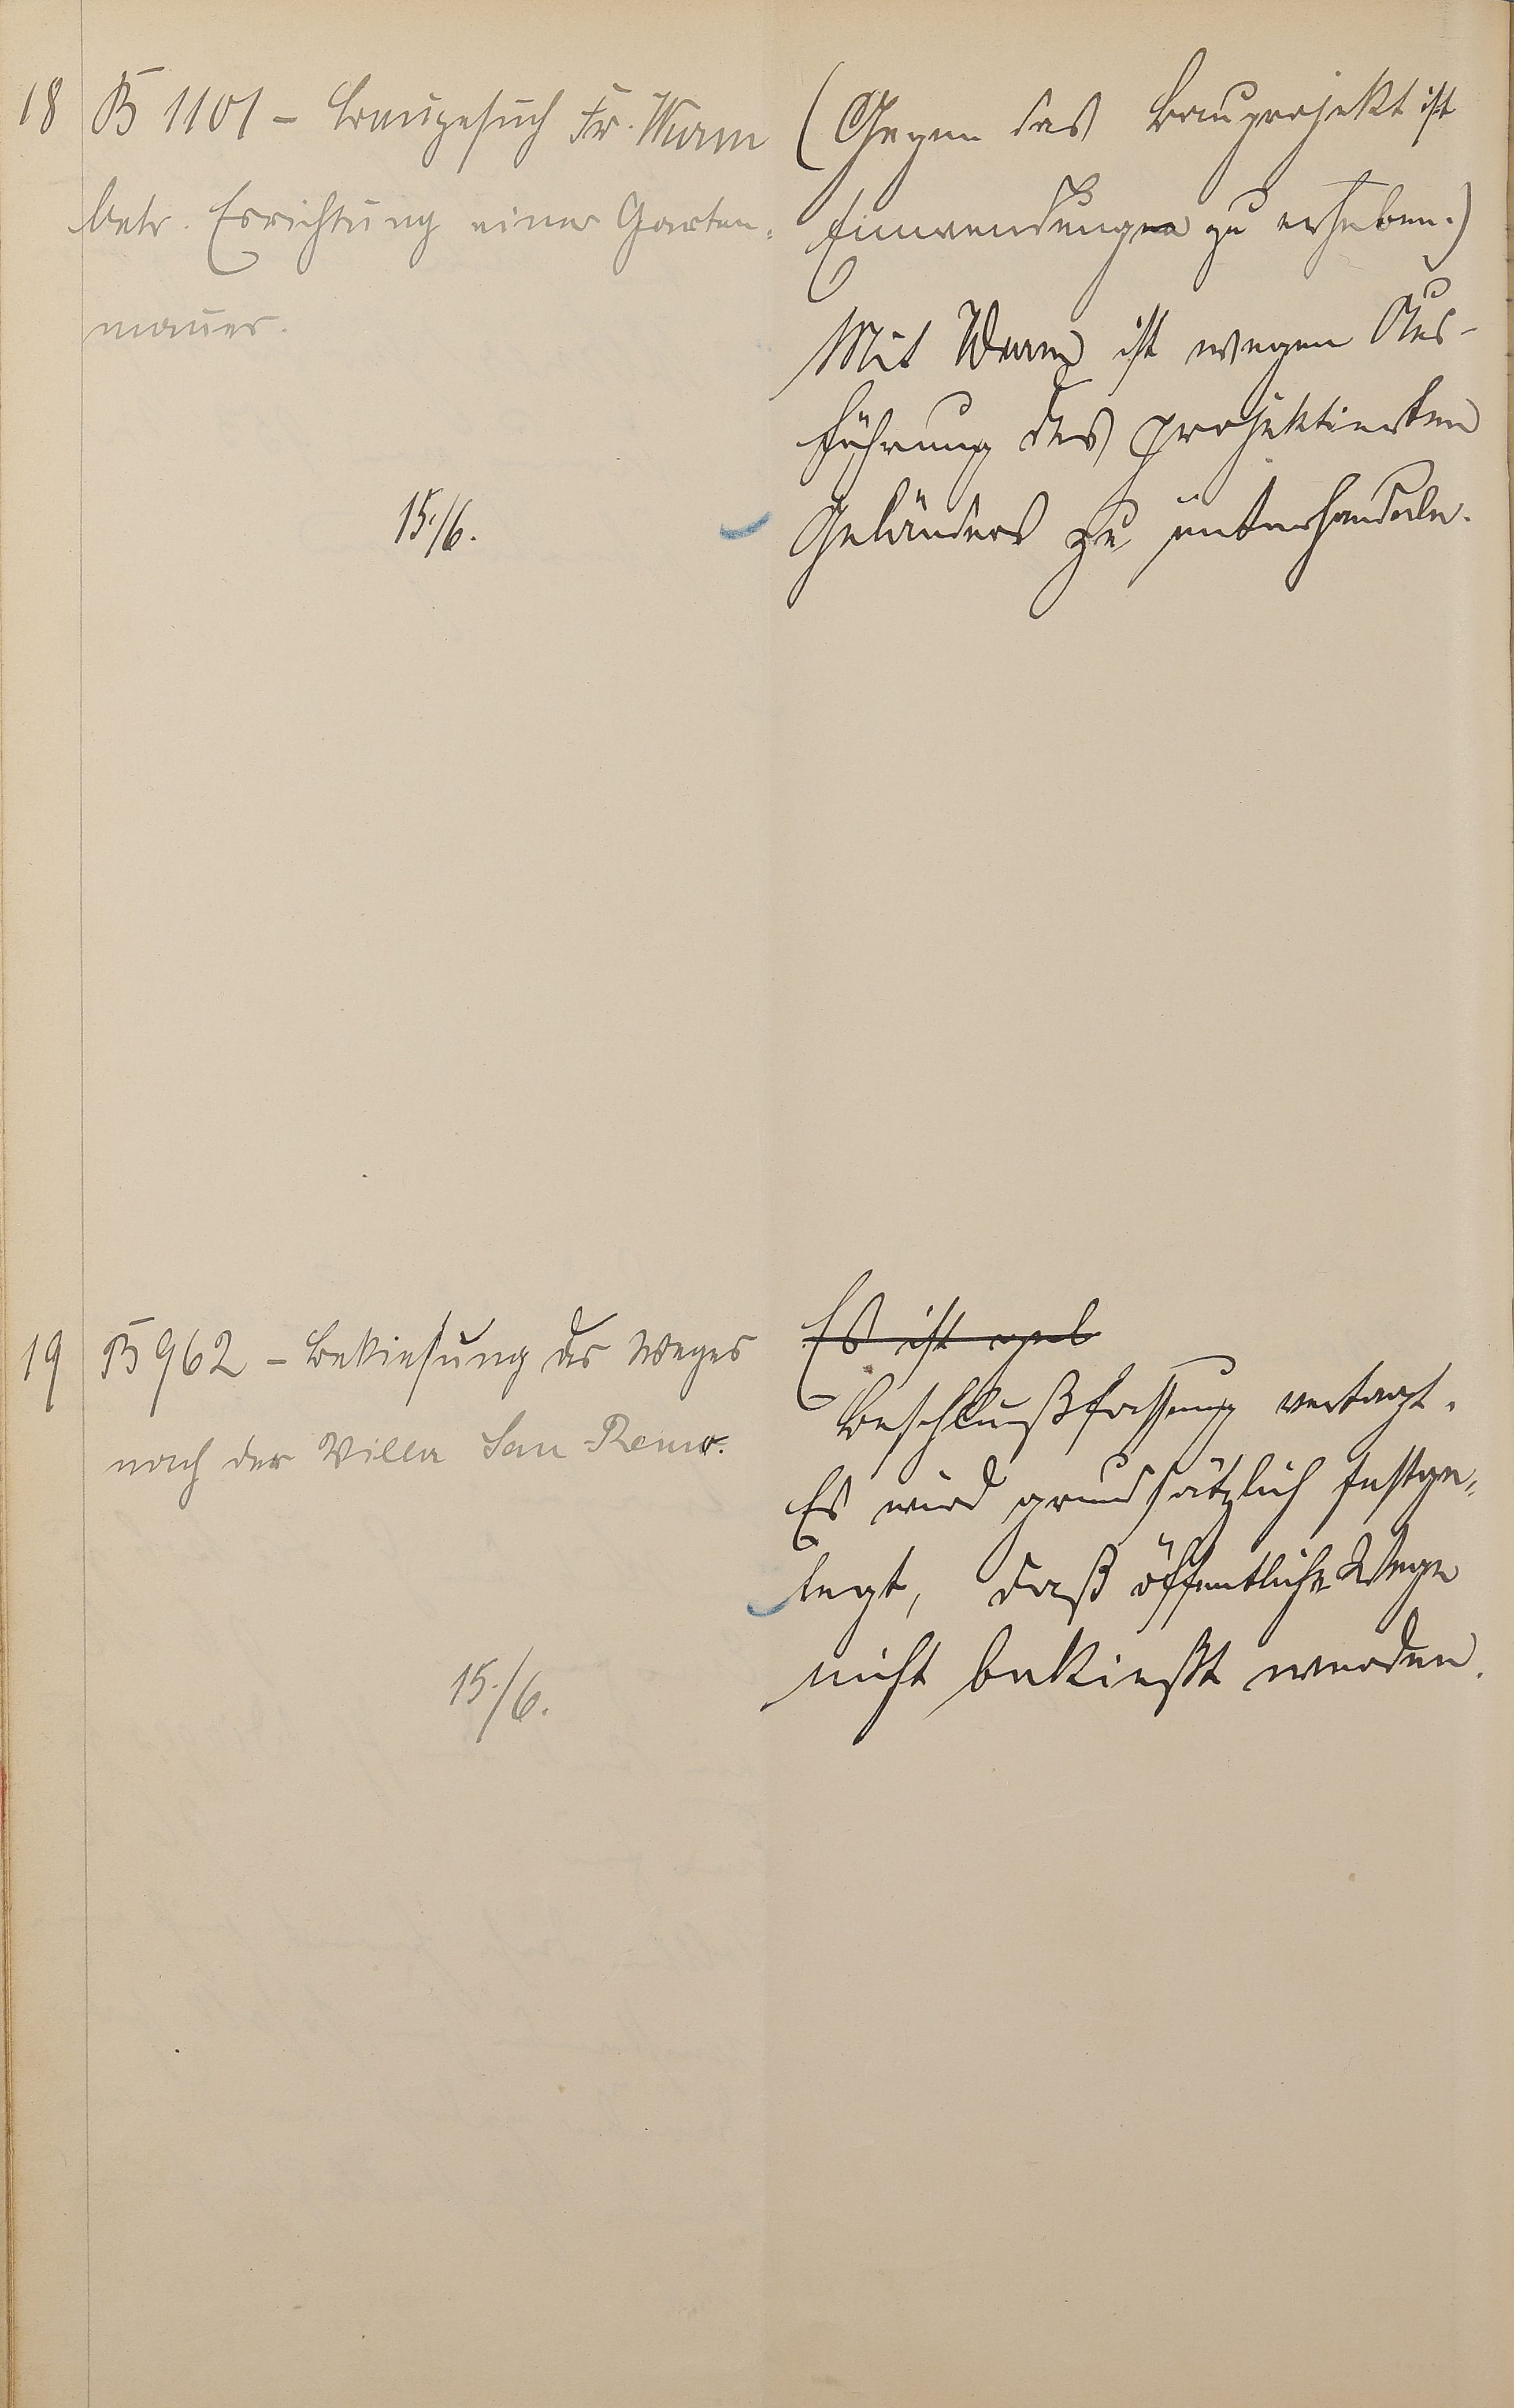 18 B 1101 - Baugesuch Fr. Wurm
betr. Errichtung einer Garten-
mauer.
15./6.
(Gegen das Bauprojekt ist
Einwendung zu erheben.)
Mit Wurm ist wegen Aus-
führung des projektierten
Geländers zu unterhandeln.
19 B 962 - Bekiesung des Weges
nach der Villa San-Remo.
15./6.
Es ist
Beschlußfassung vertagt.
Es wird grundsätzlich festge-
legt, daß öffentliche Wege
nicht bekießt werden.